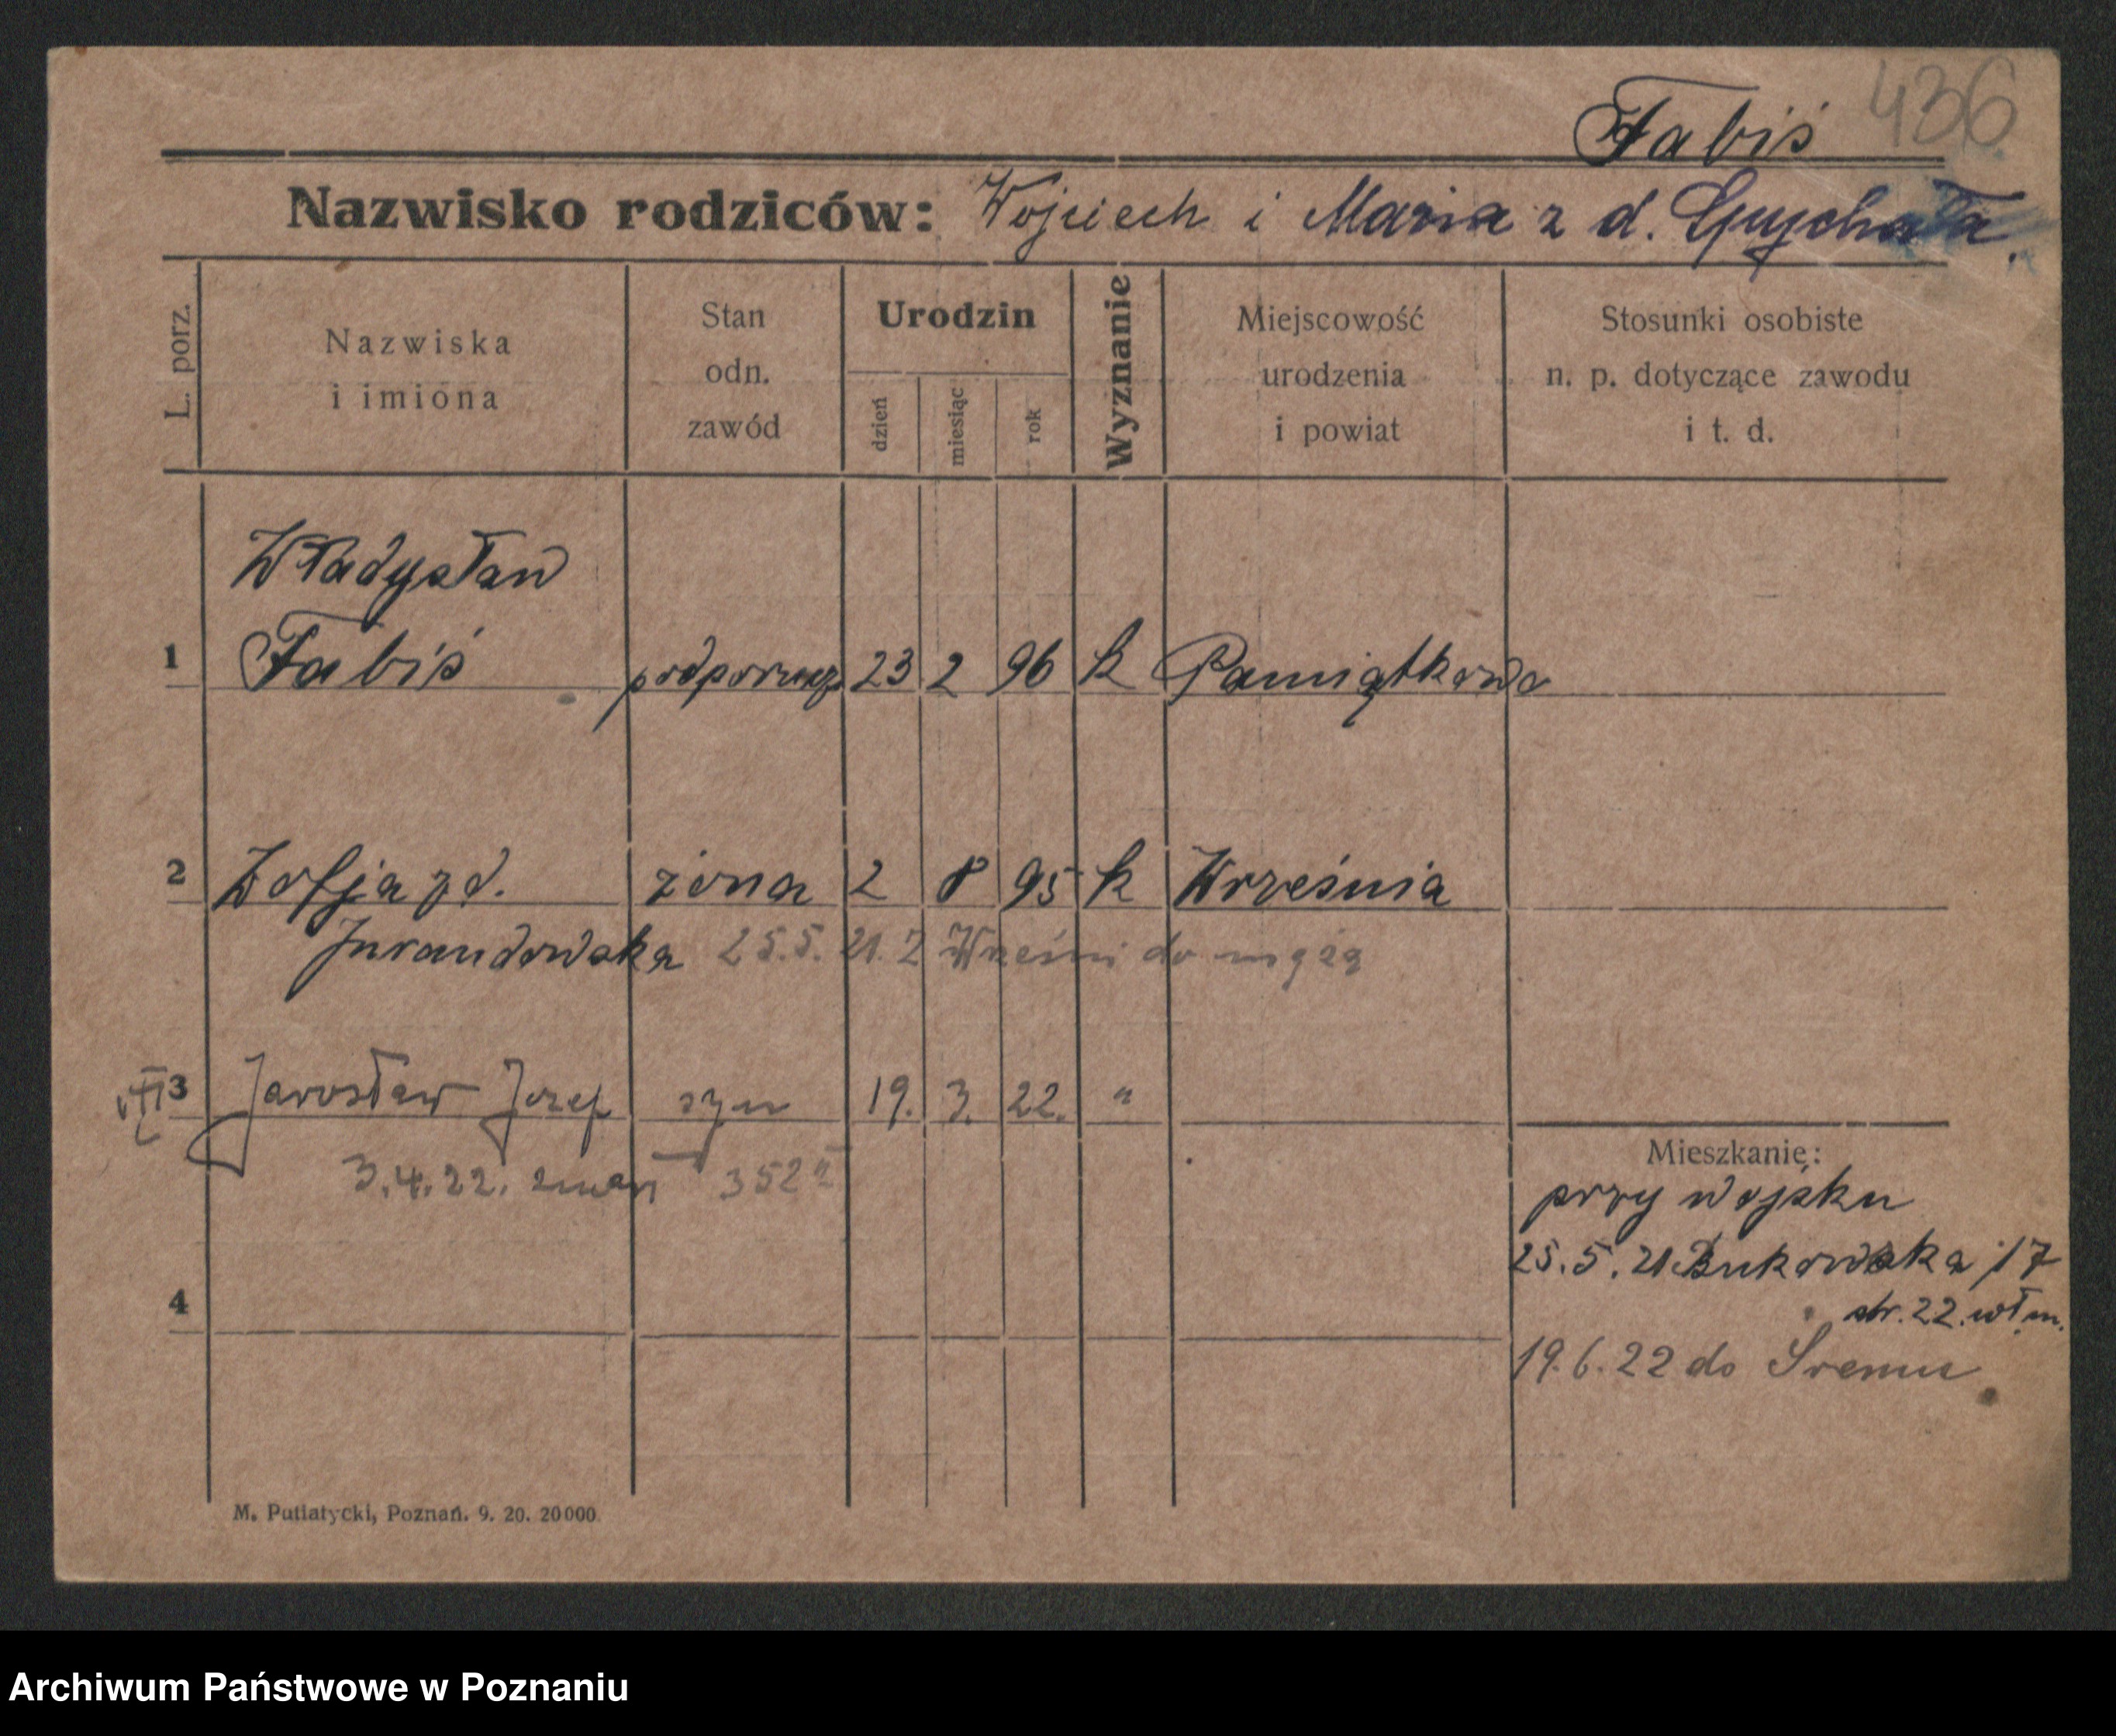 436
Fabiś
Nazwisko rodziców: Wojciech i Maria z d. Spychała.
L. porz.
Nazwiska
i imiona
Stan
odn.
zawód
Urodzin
dzień
miesiąc
rok
Wyznanie
Miejscowość
urodzenia
i powiat
Stosunki osobiste
n. p. dotyczące zawodu
i t. d.
Władysław
1 Fabiś podporucz. 23 2 96 k Pamiątkowo
2 Zofja z d. żona 2 8 95 k Września
Jurandowska 25.5.21. Z Wrześni do męża
3 Jarosław Józef syn 19. 3. 22. "
3.4.22. zmarł 352
Mieszkanie:
przy wojsku
25.5.21 Bukowska 17
str. 22. wł. m.
4
19.6.22 do Śremu
M. Putiatycki, Poznań. 9. 20. 20000.
Archiwum Państwowe w Poznaniu